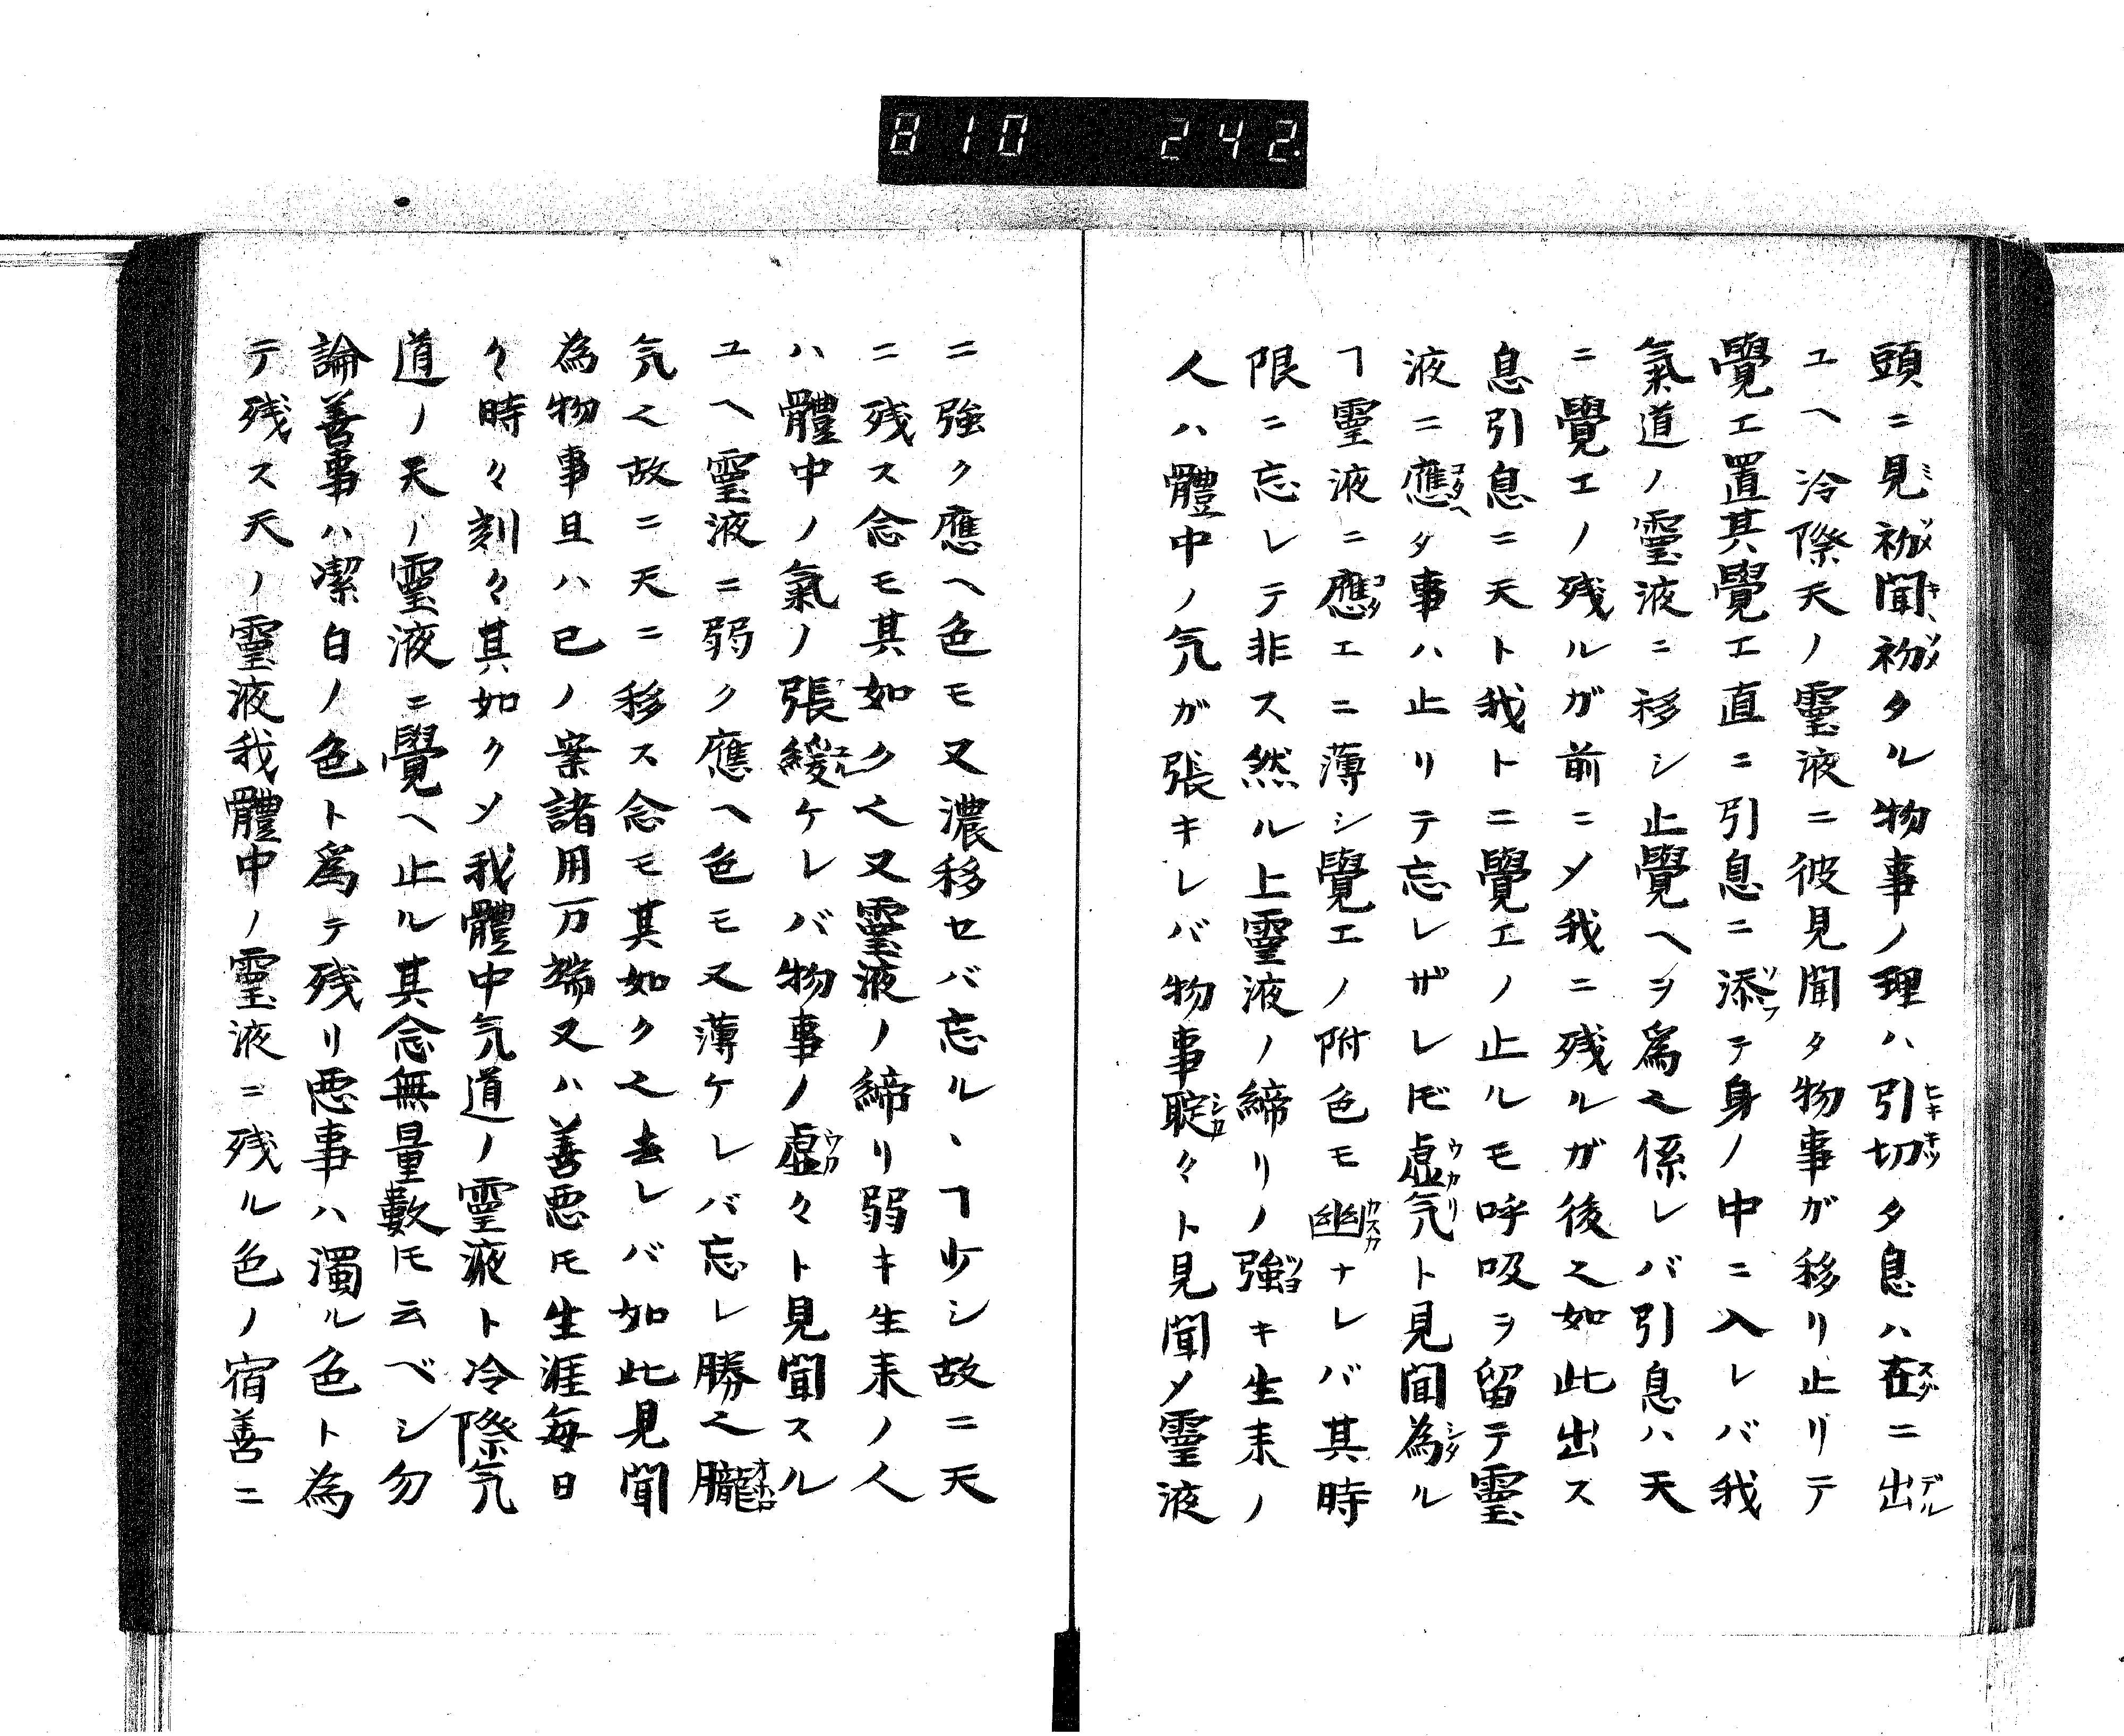 810 242.
頭ニ見初聞初タル物事ノ理ハ引切タ息ハ在ニ出
ユヘ冷際天ノ霊液ニ彼見聞タ物事ガ移リ止リテ
覺エ置其覺エ直ニ引息ニ添テ身ノ中ニ入レバ我
氣道ノ霊液ニ移シ止覺ヘヲ爲之係レバ引息ハ天
ニ覺エノ残ルガ前ニ〆我ニ残ルガ後之如此出ス
息引息ニ天ト我トニ覺エノ止ルモ呼吸ヲ留テ霊
液ニ應タ事ハ止リテ忘レザレ𪜈虚气ト見聞為ル
ヿ霊液ニ應エニ薄シ覺エノ附色モ幽ナレバ其時
限ニ忘レテ非ス然ル上霊液ノ締リノ強キ生来ノ
人ハ體中ノ気ガ張キレバ物事聢々ト見聞〆霊液
ニ強ク應ヘ色モ又濃移セバ忘ル、ヿ少シ故ニ天
ニ残ス念モ其如ク之又霊液ノ締リ弱キ生来ノ人
ハ體中ノ氣ノ張緩ケレバ物事ノ虚々ト見聞スル
ユヘ霊液ニ弱ク應ヘ色モ又薄ケレバ忘レ勝之朧
気之故ニ天ニ移ス念モ其如ク之去レバ如此見聞
為物事且ハ己ノ案諸用万端又ハ善悪𪜈生涯毎日
々時々刻々其如ク〆我體中气道ノ霊液ト冷際气
道ノ天ノ霊液ニ覺ヘ止ル其念無量數𪜈云ベシ勿
論善事ハ潔白ノ色ト爲テ残リ悪事ハ濁ル色ト為
テ残ス天ノ霊液我體中ノ霊液ニ残ル色ノ宿善ニ